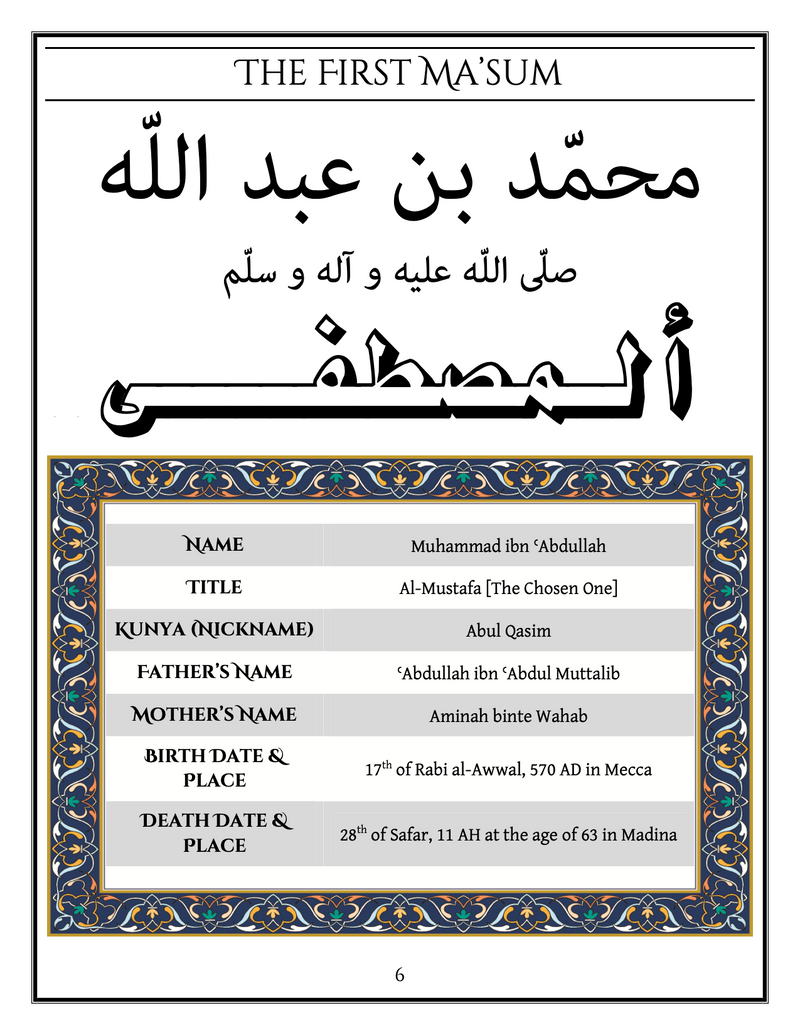 THE FIRST MA’SUM
محمّد بن عبد اللّه
صلّى اللّه عليه و آله و سلّم
ألمصطفى
NAME Muhammad ibn ʿAbdullah
TITLE Al-Mustafa [The Chosen One]
KUNYA (NICKNAME) Abul Qasim
FATHER’S NAME ʿAbdullah ibn ʿAbdul Muttalib
MOTHER’S NAME Aminah binte Wahab
BIRTH DATE &
PLACE 17th of Rabi al-Awwal, 570 AD in Mecca
DEATH DATE &
PLACE 28th of Safar, 11 AH at the age of 63 in Madina
6